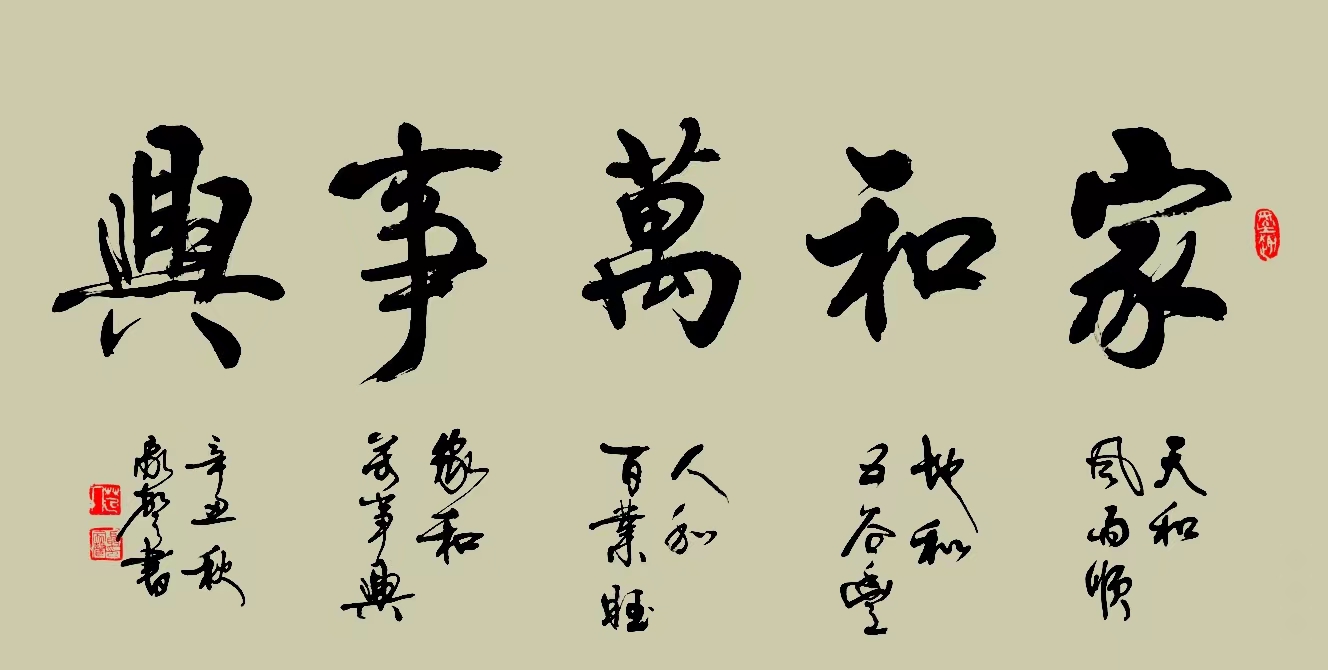 家和萬事興
天和
風雨順
地和
五谷豐
人和
百業旺
家和
萬事興
辛丑秋
書